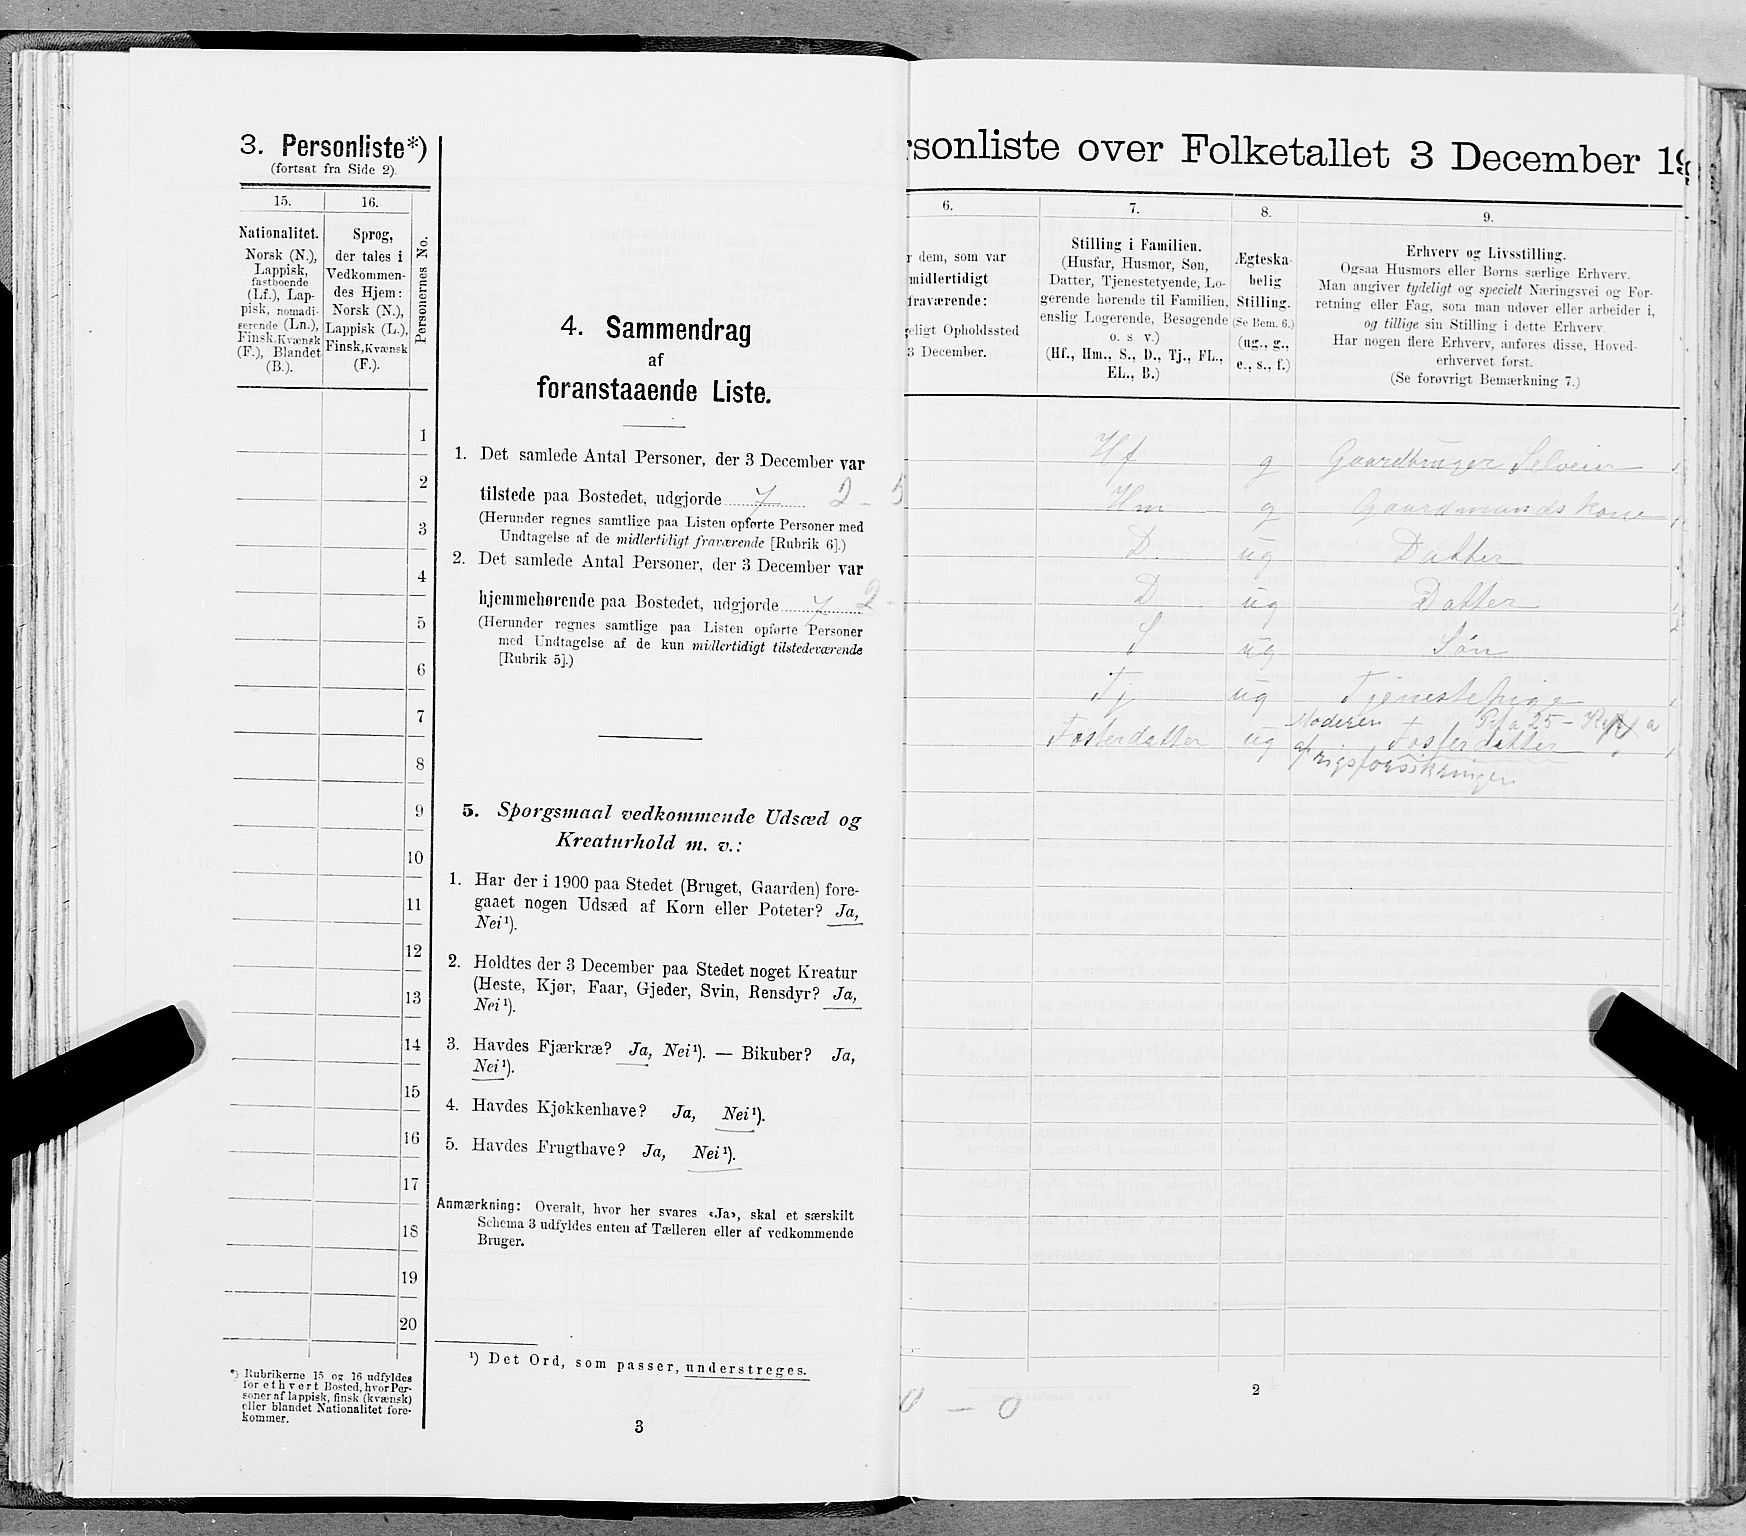 3. Personliste*)
(fortsat fra Side 2).
15.
16.
Personernes No.
Nationalitet.
Norsk (N.),
Lappisk,
fastboende
(Lf.), Lap-
pisk, nomadi-
serende (Ln.),
Finsk, Kvænsk
(F.), Blandet
(B.).
Sprog,
der tales i
Vedkommen-
des Hjem:
Norsk (N.),
Lappisk (L.),
Finsk, Kvænsk
(F.).
1
2
3
4
5
6
7
8
9
10
11
12
13
14
15
16
17
18
19
20
*) Rubrikerne 15 og 16 udfyldes
for ethvert Bosted, hvor Per-
soner af lappisk, finsk (kvænsk)
eller blandet Nationalitet fore-
kommer.
4. Sammendrag
af
foranstaaende Liste.
1. Det samlede Antal Personer, der 3 December var
tilstede paa Bostedet, udgjorde 7 2 - 5
(Herunder regnes samtlige paa Listen opførte Personer med
Undtagelse af de midlertidigt fraværende [Rubrik 6].)
2. Det samlede Antal Personer, der 3 December var
hjemmehørende paa Bostedet, udgjorde 7 2 -
(Herunder regnes samtlige paa Listen opførte Personer
med Undtagelse af de kun midlertidigt tilstedeværende
[Rubrik 5].)
5. Spørgsmaal vedkommende Udsæd og
Kreaturhold m. v.:
1. Har der i 1900 paa Stedet (Bruget, Gaarden) fore-
gaaet nogen Udsæd af Korn eller Poteter? Ja,
Nei¹).
2. Holdtes der 3 December paa Stedet noget Kreatur
(Heste, Kjør, Faar, Gjeder, Svin, Rensdyr? Ja,
Nei¹).
3. Havdes Fjærkræ? Ja, Nei¹). — Bikuber? Ja,
Nei¹).
4. Havdes Kjøkkenhave? Ja, Nei¹).
5. Havdes Frugthave? Ja, Nei¹).
Anmærkning: Overalt, hvor her svares «Ja», skal et særskilt
Schema 3 udfyldes enten af Tælleren eller af vedkommende
Bruger.
¹) Det Ord, som passer, understreges.
3
rsonliste over Folketallet 3 December 19
6.
7.
8.
9.
r dem, som var
midlertidigt
fraværende:
geligt Opholdssted
3 December.
Stilling i Familien.
(Husfar, Husmor, Søn,
Datter, Tjenestetyende, Lo-
gerende hørende til Familien,
enslig Logerende, Besøgende
o. s v.)
(Hf., Hm., S., D., Tj., FL.,
EL., B.)
Ægteska-
belig
Stilling.
(Se Bem. 6.)
(ug., g.,
e., s., f.)
Erhverv og Livsstilling.
Ogsaa Husmors eller Børns særlige Erhverv.
Man angiver tydeligt og specielt Næringsvei og For-
retning eller Fag, som man udøver eller arbeider i,
og tillige sin Stilling i dette Erhverv.
Har nogen flere Erhverv, anføres disse, Hoved-
erhvervet først.
(Se forøvrigt Bemærkning 7.)
Hf g Gaardbruger Selveier
Hm g Gaardmands kone
D ug Datter
D ug Datter
S ug Søn
Tj ug Tjenestepige
Moderen
Fosterdatter ug Fosterdatter
0 - 0
2